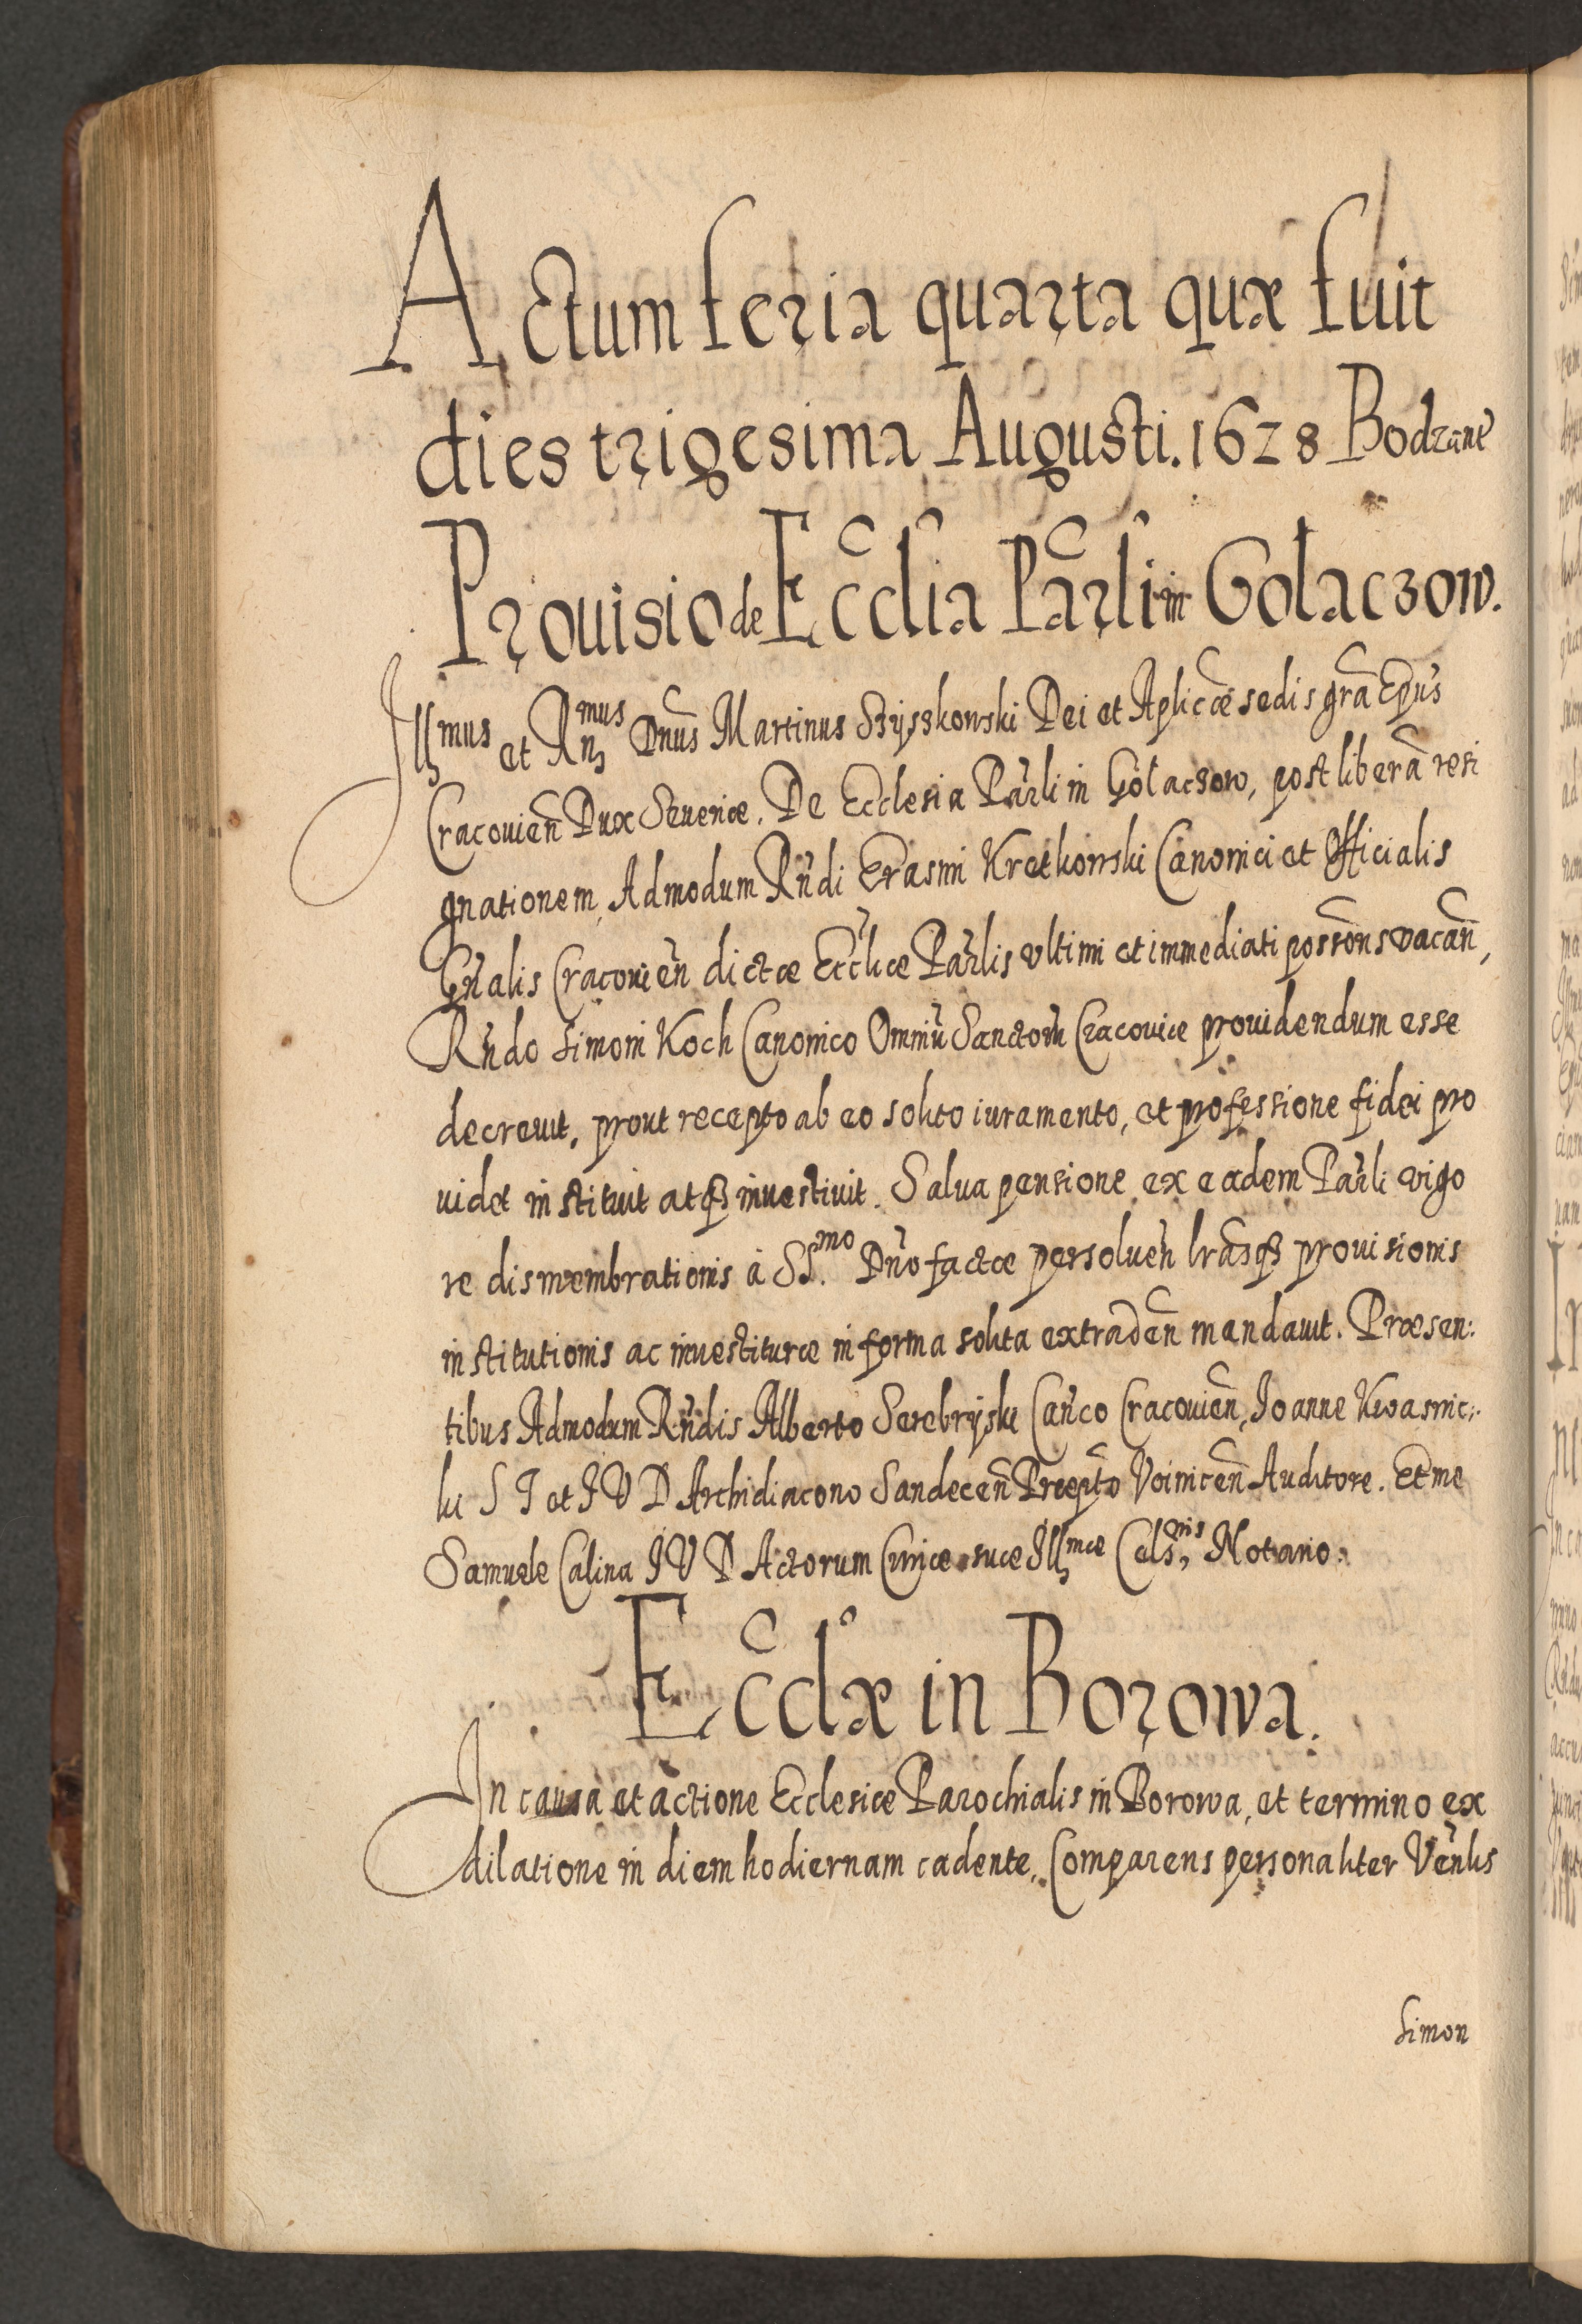 Actum feria quarta quæ fuit
dies trigesima Augusti. 1628 Bodzane
Prouisio de Ecclia Parli in Golaczow.
Illmus et Rnmus Dnus Martinus Szyszkowski Dei et Aplicæ sedis gra Epus
Cracouien Dux Seueriæ. De Ecclesia Parli in Golaczow, post libera resi
gnationem, Admodum Rndi Erasmi Kretkowski Canonici et Officialis
Gnalis Cracouien dictæ Eccliæ Parlis vltimi et immediati possons vacan,
Rndo Simoni Koch Canonico Omniu Sanctoru Cracouiæ prouidendum esse
decreuit, prout recepto ab eo solito iuramento, et professione fidei pro
uidet instituit atq inuestiuit. Salua pensione ex eadem Parli vigo
re dismembrationis à SS.mo Dno factæ persoluen lrasq prouisionis
institutionis ac inuestituræ in forma solita extraden mandauit. Præsen:
tibus Admodum Rndis Alberto Serebryski Canco Cracouien, Joanne Kwasnic:
ki S T et I V D Archidiacono Sandecen Præpto Voinicen Auditore. Et me
Samuele Calina I V D Actorum Curiæ suæ Illmæ Celsnis Notario.
Ecclæ in Borowa.
In causa et actione Ecclesiæ Parochialis in Borowa, et termino ex
dilatione in diem hodiernam cadente, Comparens personaliter Venlis
Simon